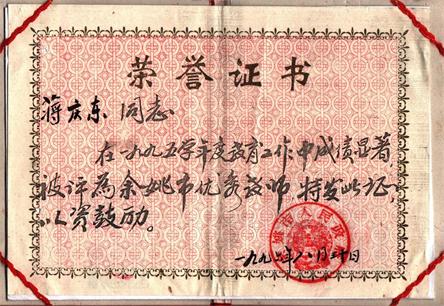 荣誉证书
蒋庆东 同志
在一九九五学年度教育工作中成绩显著
被评为余姚市优秀教师 特发此证
以资鼓励。
市人民政
一九九六年八月三十日